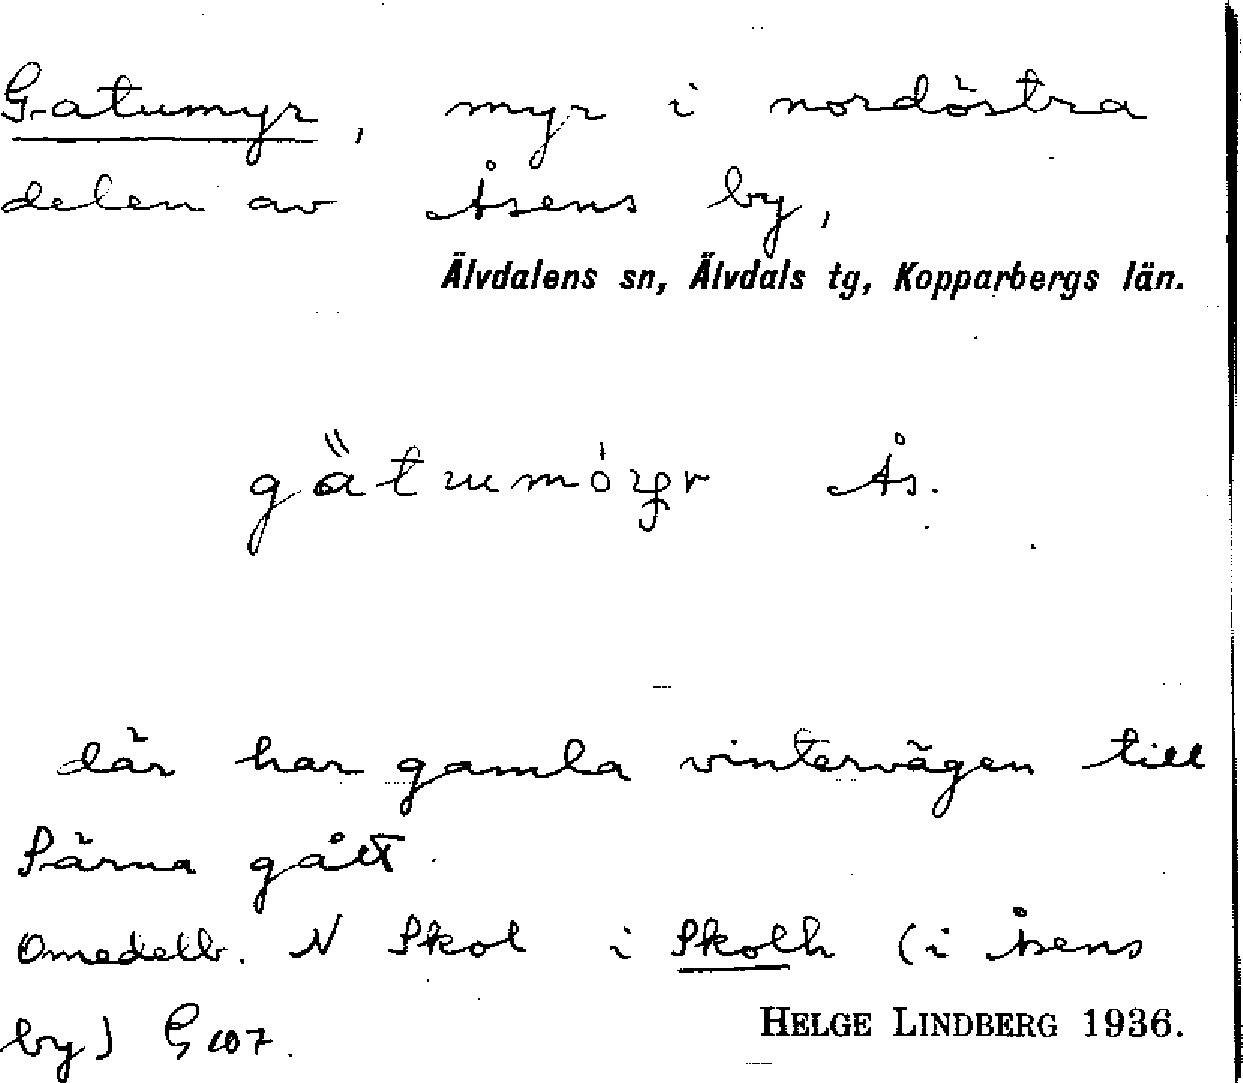 Gatumyr, myr i nordöstra
delen av Åsens by,
Älvdalens sn, Älvdals tg, Kopparbergs län.
Ås.
där har gamla vintervägen till
Särna gått.
Omedelb. N Skol i Skolh (i Åsens
by)
HELGE LINDBERG 1936.